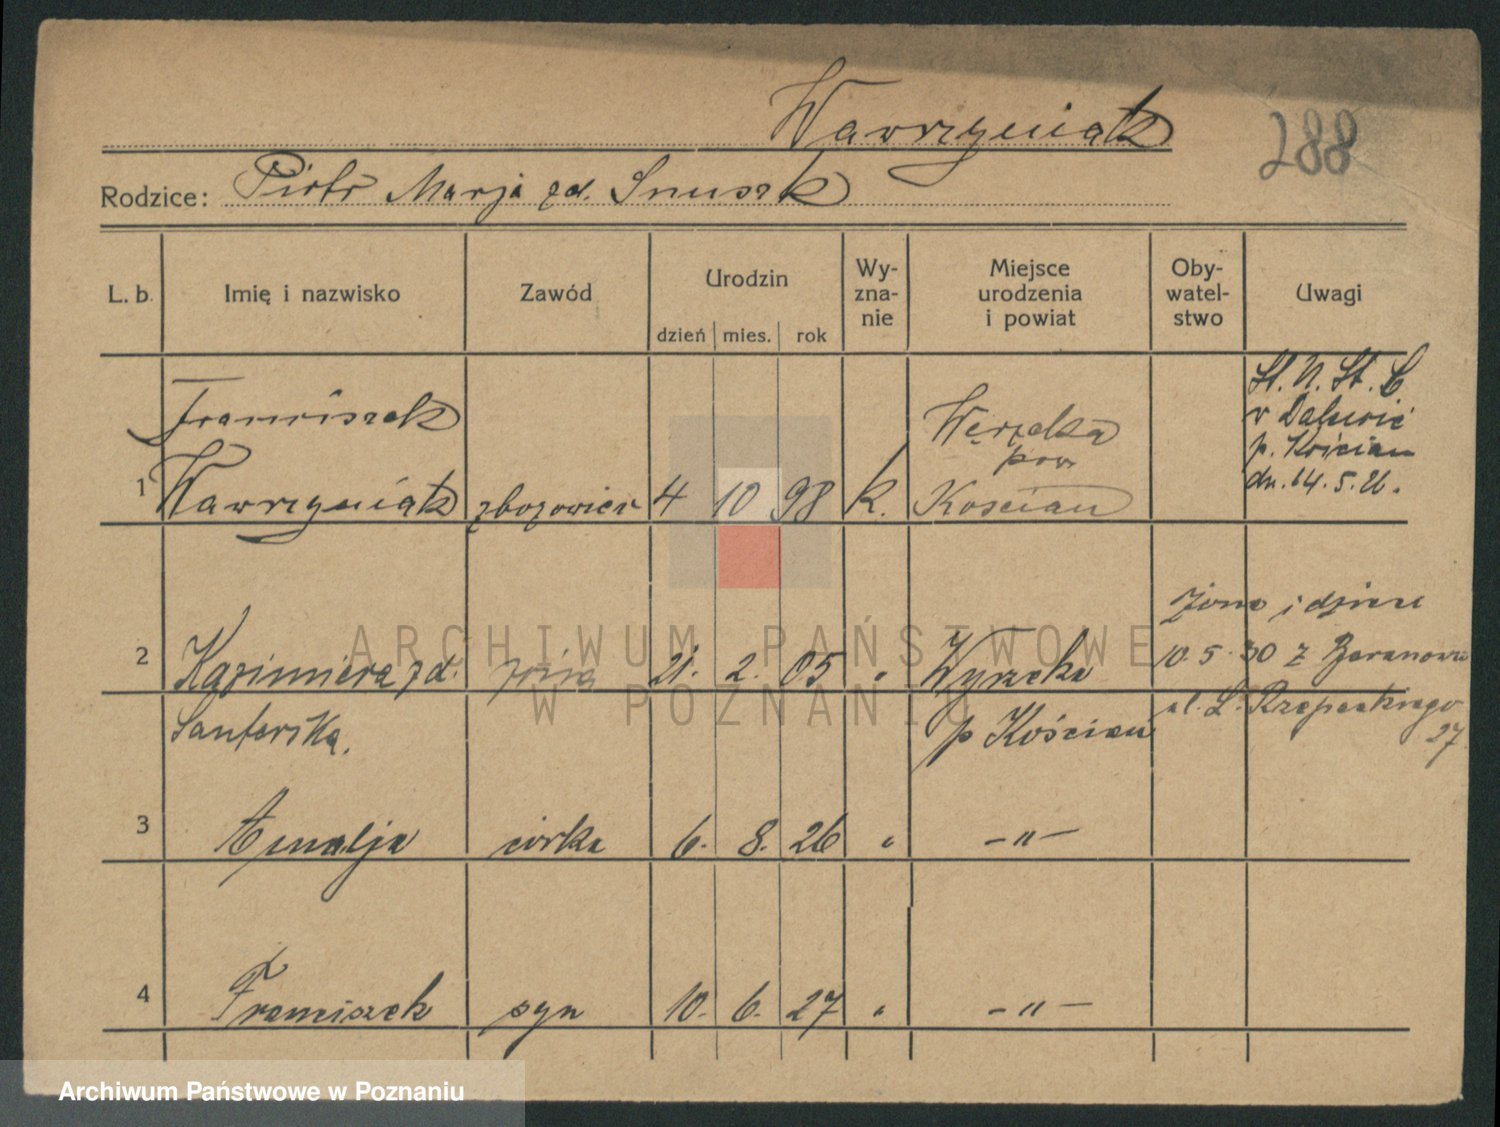 Wawrzyniak
288
Rodzice: Piotr Marja zd. Snuszk
L. b. Imię i nazwisko Zawód Urodzin Wy-zna-nie Miejsce urodzenia i powiat Oby-watel-stwo Uwagi
dzień mies. rok
1 Franciszek Wawrzyniak zbozowiec 4 10 98 k. pow Kościan
St. N. St. C
p. Kościan
dn. 14.5.26.
2 Kazimiera zd. 21. 2. 05 " Wyrzeka
p Kościan
Żona i dzieci
10.5.30 z Baranowa
ul. L. Rzepeckiego
27
3 Amalja córka 6. 8. 26 " -"-
4 Franciszek syn 10. 6. 27 " -"-
ARCHIWUM PAŃSTWOWE
W POZNANIU
Archiwum Państwowe w Poznaniu